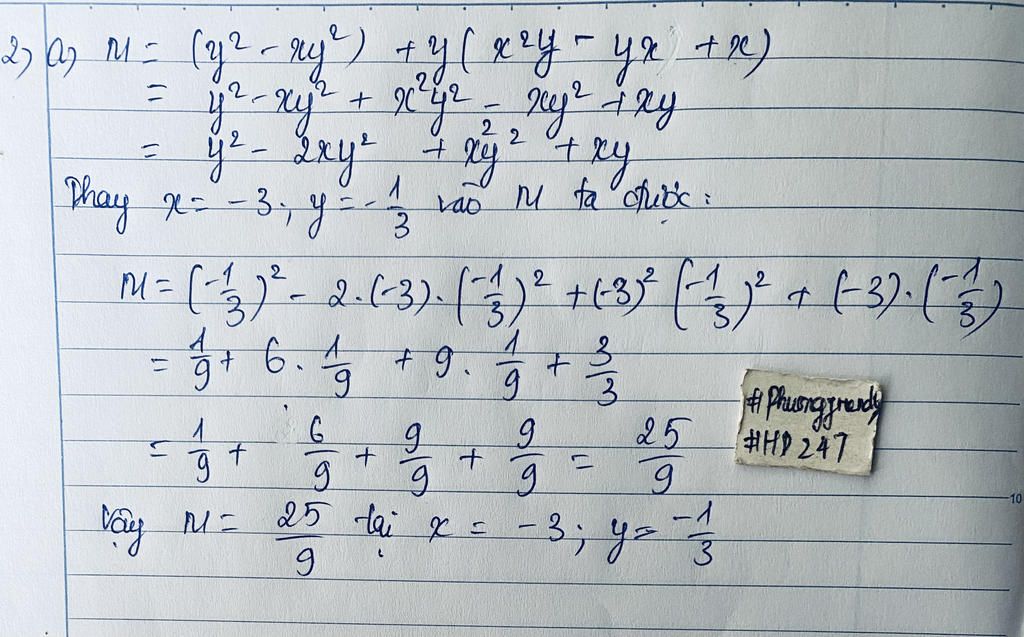 2) a) M = (y² - xy²) + y(x²y - yx + x)
= y² - xy² + x²y² - xy² + xy
= y² - 2xy² + x²y² + xy
Thay x = -3; y = -1/3 vào M ta được:
M = (-1/3)² - 2·(-3)·(-1/3)² + (-3)² (-1/3)² + (-3)·(-1/3)
= 1/9 + 6 · 1/9 + 9 · 1/9 + 3/3
= 1/9 + 6/9 + 9/9 + 9/9 = 25/9
Vậy M = 25/9 tại x = -3; y = -1/3
#HD247
10